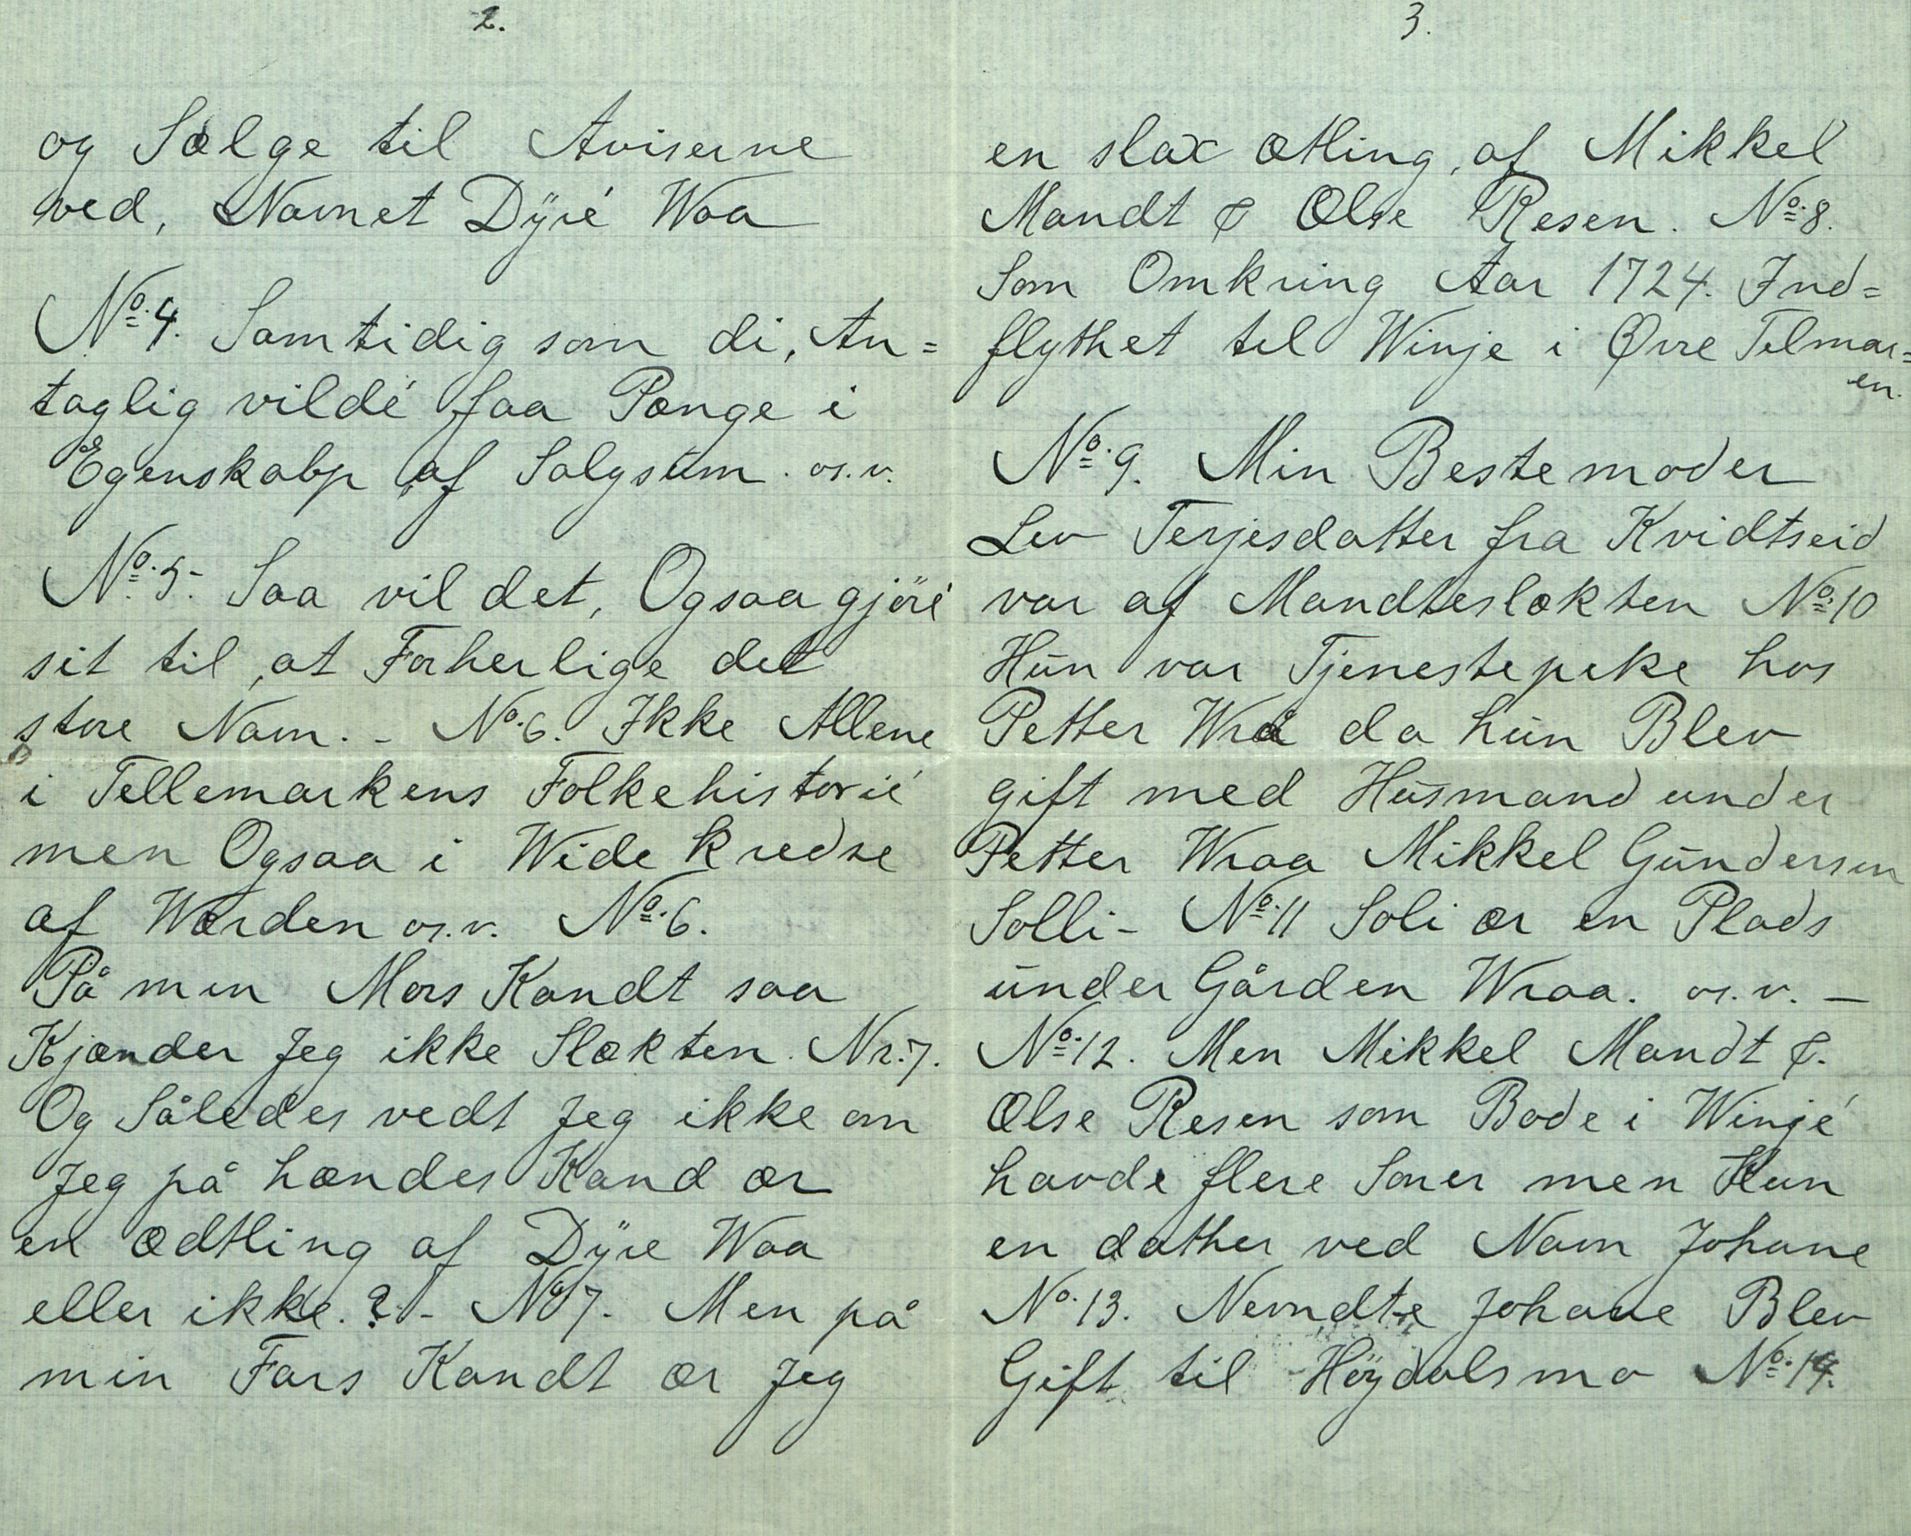 2.
og Sælge til Aviserne
ved, Navnet Dÿré Waa
No. 4. Samtidig som di, An=
taglig vildé faa Pænge i
Egenskabp af Salgsum. os.v.
No. 5- Saa vil det, Ogsaa gjöré
sit til, at Forherlige det
store Navn. - No. 6. Ikke Allene
i Tellemarkens Folkehistorié
men Ogsaa i Wide kredse
af Wærden os.v. No. 6.
På min Mors Kandt saa
Kjænder Jeg ikke Slækten. Nr. 7.
Og Således vedt Jeg ikke om
Jeg på hændes Kand ær
en ædtling af Dÿre Waa
eller ikke. ?. - No 7. Men på
min Fars Kandt ær Jeg
3.
en slax ætling, af Mikkel
Mandt & Ælse Resen. No. 8.
Som Omkring Aar 1724. Ind=
flythet til Winje i Øvre Telmar=
en.
No. 9. Min Bestemoder
Lev Terjesdatter fra Kvidtseid
var af Mandteslækten No. 10
Hun var Tjenestepeke hos
Petter Wraa da hun Blev
gift med Husmand under
Petter Wraa Mikkel Gundersen
Solli- No. 11 Soli ær en Plads
under Gården Wraa. os.v. -
No. 12. Men Mikkel Mandt &.
Ælse Resen som Bode i Winjé
havde flere Søner men Kun
en dather ved Navn Johane
No. 13. Nevndte Johane Blev
Gift til Høydalsmo No. 14.